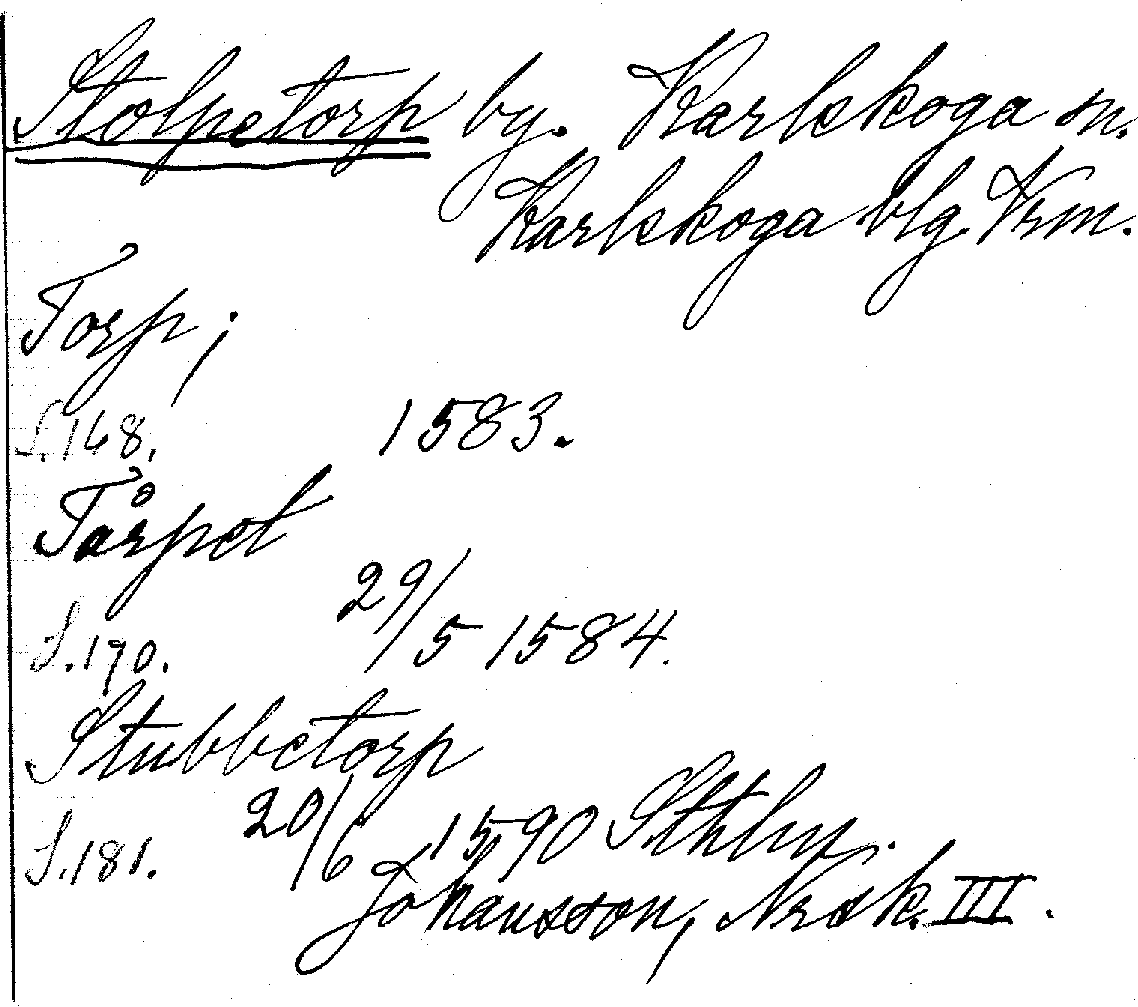 Stolpetorp by. Karlskoga sn.
Karlskoga blg. Vrm.
Torp;
S.148. 1583.
Tårpet
S.170. 29/5 1584.
Stubbetorp
S.181. 20/6 1590 Sthlm.
Johansson, Nrsk. III.